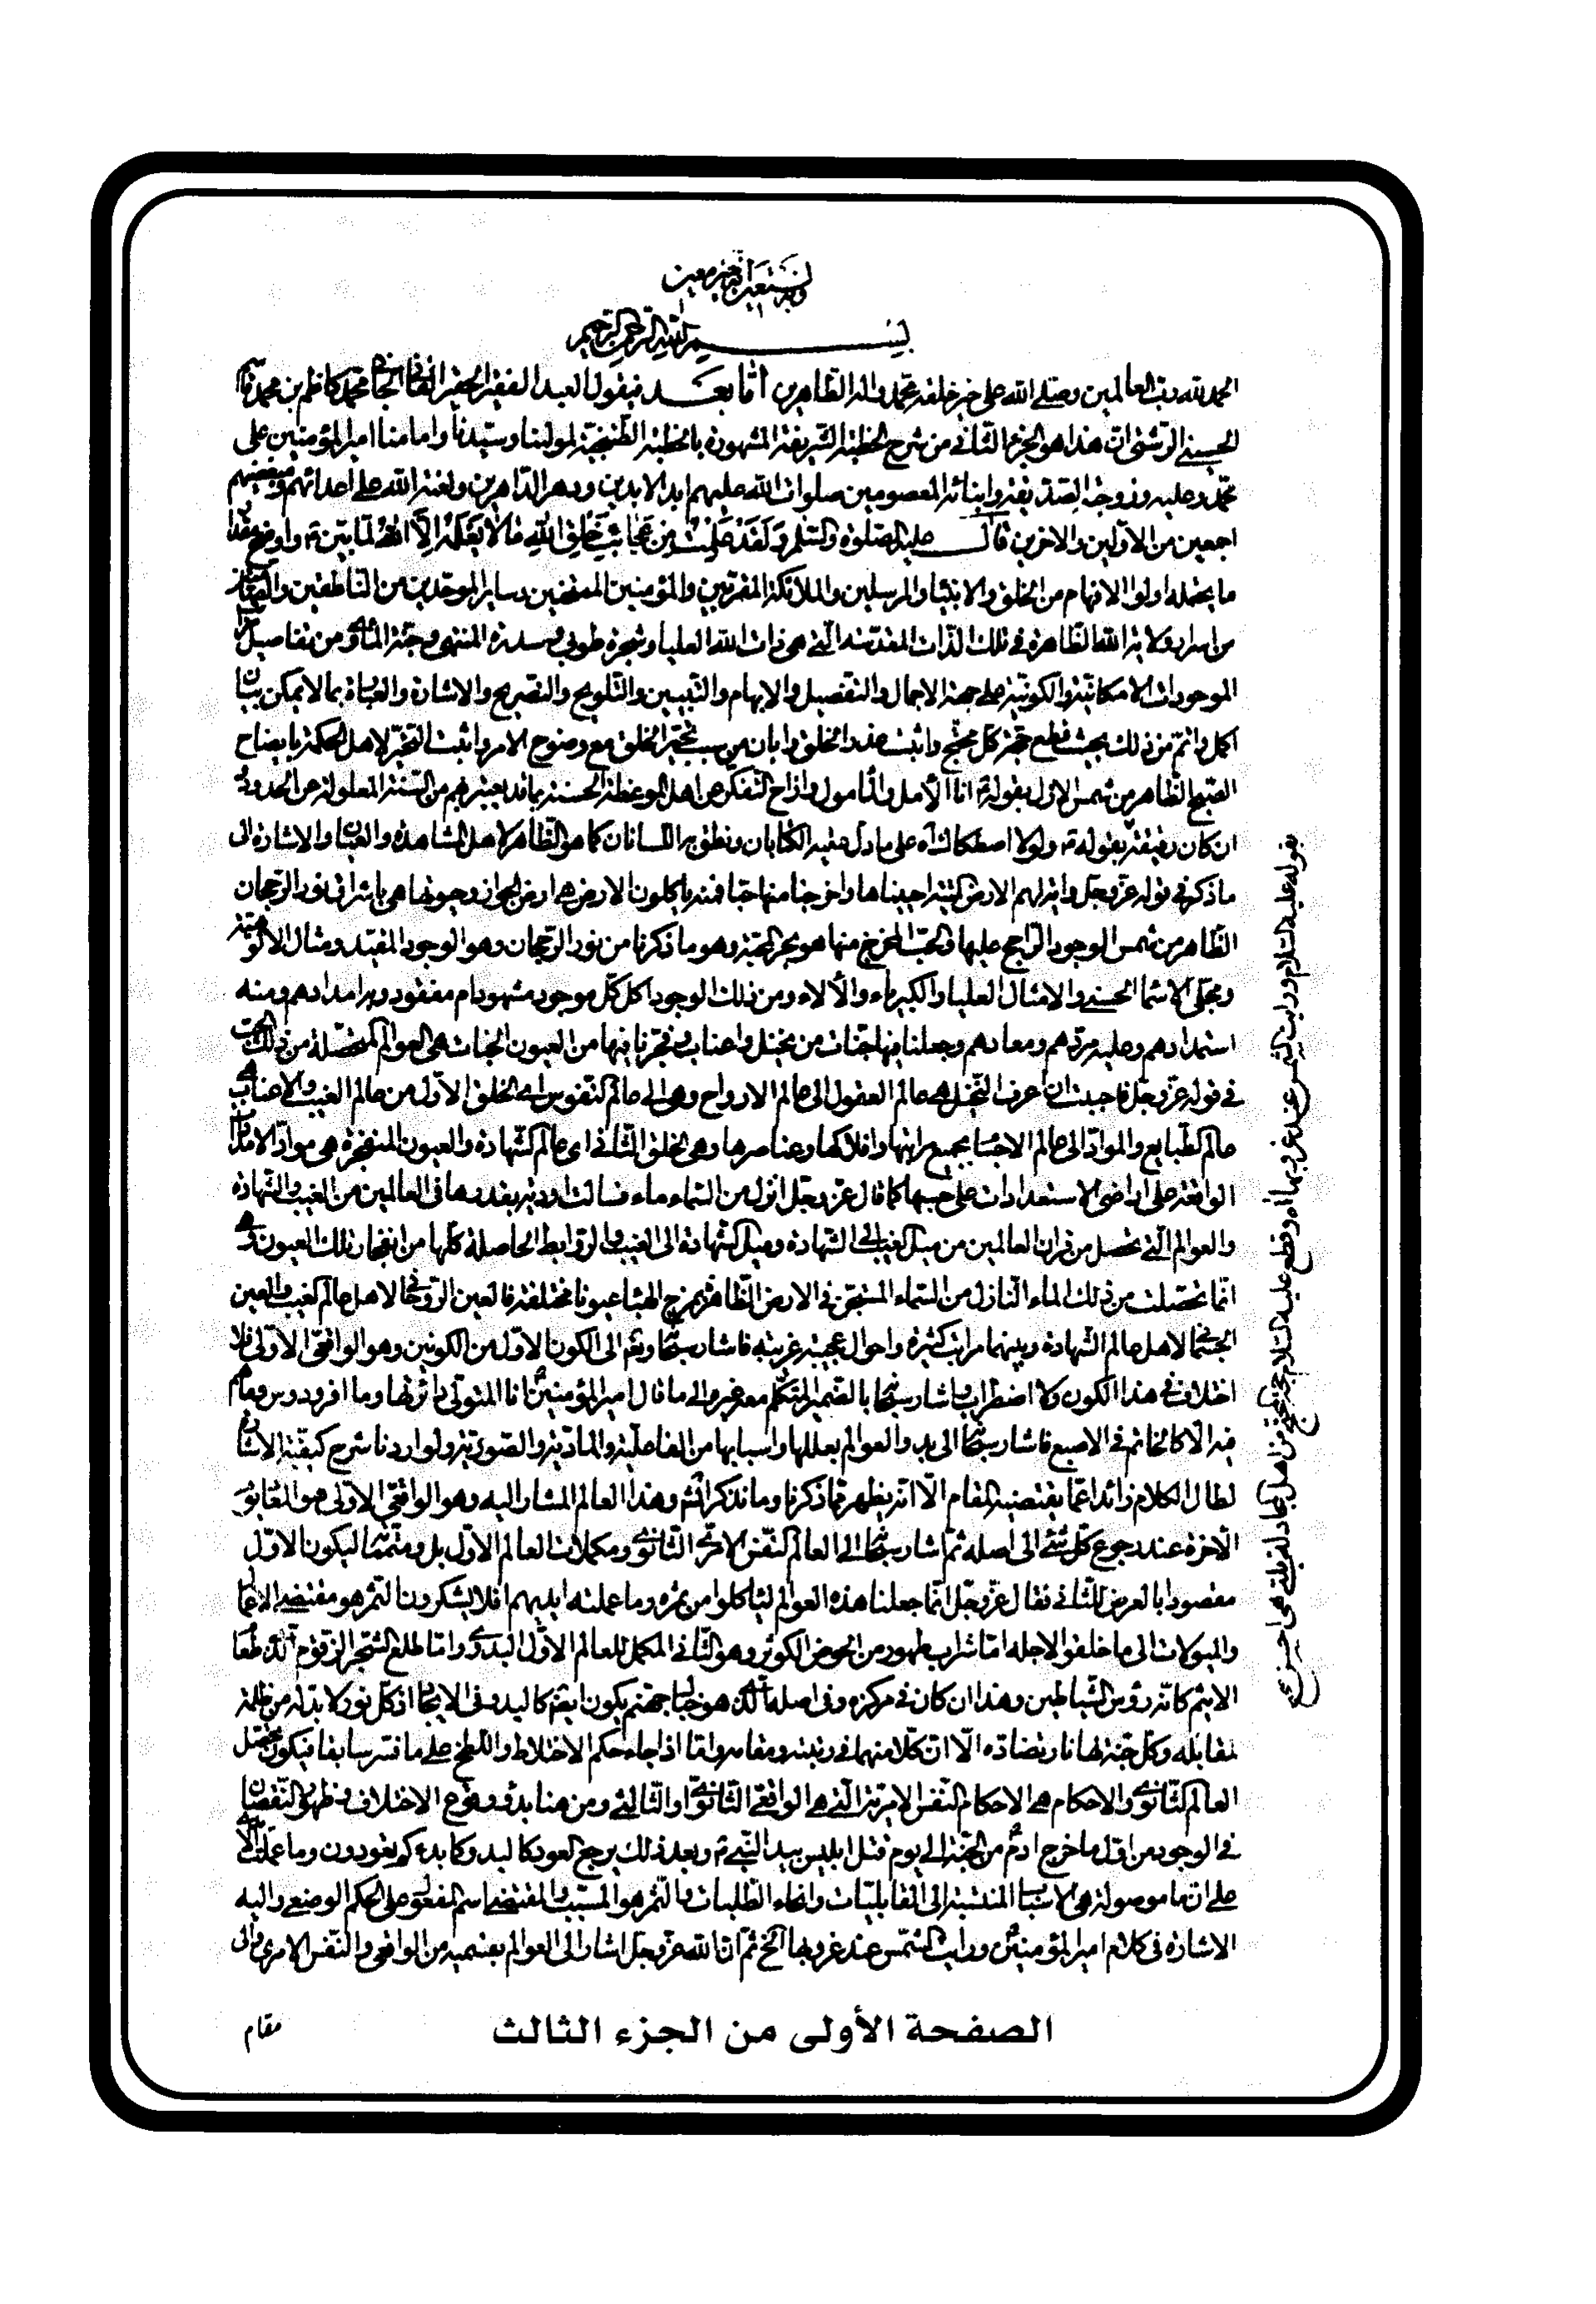 وبه نستعين انه خير معين
بسم الله الرحمن الرحيم
الحمد لله رب العالمين وصلى الله على خير خلقه محمد واله الطاهرين اما بعد فيقول العبد الفقير الحقير الفاني الجاني محمد كاظم بن محمد قاسم
الحسيني الرشتي ان هذا هو الجزء الثاني من شرح الخطبة الشريفة المشهورة بالخطبة الطتنجية لمولينا وسيدنا وامامنا امير المؤمنين على
محمد وعليه وزوجته الصديقة وابنائه المعصومين صلوات الله عليهم ابد الابدين ودهر الداهرين ولعنة الله على اعدائهم ومبغضيهم
اجمعين من الاولين والاخرين قال عليه الصلوة والسلم ولقد علمت من عجائب خلق الله ما لا يعلمه الا الله لما بين ع واوضح
ما يحتمله اولوا الافهام من الخلق والانبياء والمرسلين والملائكة المقربين والمؤمنين الممتحنين وساير الموحدين من الناطقين والصامتين
من اسرار ولاية الله الظاهرة في تلك الذات المقدسة التي هي ذات الله العليا وشجرة طوبى وسدرة المنتهى وجنة المأوى من تفاصيل
الموجودات الامكانية والكونية على جهة الاجمال والتفصيل والابهام والتبيين والتلويح والتصريح والاشارة والعبارة بما لا يمكن بيان
اكمل واتم من ذلك بحيث قطع حجة كل محتج واثبت عذر الخلق وابان من سبب تحير الخلق مع وضوح الامر واثبت التحير لاهل الحكمة بايضاح
الصبح الظاهر من شمس الازل بقوله ع انا الامل والمأمول وازاح التفكر عن اهل الموعظة الحسنة
ان كان رتقته بقوله ع ولولا اصطكاك على ما دل عليه الكتابان ونطق به اللسانان كما هو الظاهر لاهل المشاهدة والعيان والاشارة الى
ما ذكر في قوله عز وجل واية لهم الارض الميتة احييناها واخرجنا منها حبا فمنه ياكلون الارض هي ارض الجواز وحيوتها هي باشراق نور الرجحان
الظاهر من شمس الوجود الراجح عليها والحب المخرج منها هو بحر المحبة وهو ما ذكرنا من نور الرجحان وهو الوجود المقيد ومثال الالوهية
ومجلى الاسماء الحسنى والامثال العليا والكبرياء والآلاء ومن ذلك الوجود اكل كل موجود مشهود ام مفقود وبه امدادهم ومنه
استمدادهم وعليه مردهم ومعادهم وجعلنا فيها جنات من نخيل واعناب وفجرنا فيها من العيون الجنات هي العوالم المتحصلة من ذلك الحب
في قوله عز وجل فاحببت ان اعرف النخيل هي عالم العقول الى عالم الارواح وهي الى عالم النفوس اي الخلق الاول من عالم الغيب والاعناب هي
عالم الطبايع والمواد الى عالم الاجسام بجميع مراتبها وافلاكها وعناصرها وهي الخلق الثاني اى عالم الشهادة والعيون المنفجرة هي مواد الامدادات
الواقعة على اراضي الاستعدادات على حسبها كما قال عز وجل انزل من السماء ماء فسالت اودية بقدرها في العالمين من الغيب والشهادة
والعوالم التي تحصل من قران العالمين من ميل الغيب الى الشهادة وميل الشهادة الى الغيب والروابط الحاصلة كلها من انفجار تلك العيون وهي
انما تحصلت من ذلك الماء النازل من السماء المستجن في الارض الظاهر بمزج الهباء عيونا مختلفة فالعين الروحاني لاهل عالم الغيب والعين
الجسماني لاهل عالم الشهادة وبينهما مراتب كثيرة واحوال عجيبة غريبة فاشار سبحانه وتع الى الكون الاول من الكونين وهو الواقعي الاولى فلا
اختلاف في هذا الكون ولا اضطراب واشار سبحانه بالضمير المتكلم معه غيره الى ما قال امير المؤمنين ع انا المتولي دائرتها وما افردوس وما هم
فيه الا كالخاتم في الاصبع فاشار سبحانه الى يد والعوالم بعللها واسبابها من الفاعلية والمادية والصورية ولو اردنا شرح كيفية الاشارة
لطال الكلام زائدا عما يقتضيه المقام الا انه يظهر مما ذكرنا وما نذكر انشم وهذا العالم المشار اليه وهو الواقعي الاولى هو
الآخرة عند رجوع كل شئ الى اصله ثم اشار سبحانه الى العالم النفس الامري الثانوي ومكملات العالم الاول بل ومتمما ليكون الاول
مقصودا بالعرض للثاني فقال عز وجل انما جعلنا هذه العوالم لياكلوا من ثمره وما عملته ايديهم افلا يشكرون الثمر هو مقتضى الاعمال
والميولات الى ما خلقوا لاجله اما شراب طهور من الحوض الكوثر وهو الثاني المكمل للعالم الاول البدوي واما طلع شجر الزقوم الذي طعام
الاثيم كانه رؤس الشياطين وهذا ان كان في مركزه وفي اصله الذي هو جهنم يكون ايضا كالبدو في الايجاد اذ كل نور لا بد له من ظلمة
لمقابله وكل جنة لها نار بضادته الا ان كلا منهما في رتبته ومقامه واما اذا جاء حكم الاختلاط واللطخ على ما فسر سابقا فيكون
العالم الثانوي والاحكام هي الاحكام النفس الامرية التي هي الواقعي الثانوي او الثالثي ومن هنا بدؤ وقوع الاختلاف وظهور النقصان
في الوجود من اول ما خرج ادم ع من الجنة الى يوم قتل ابليس بيد النبي ص وبعد ذلك يرجع العود كالبدو كما بدءكم تعودون وما عملته
على ان ما موصولة هي الاسباب المنتسبة الى القابليات وانحاء الطلبات والثمر هو المسبب والمقتضى اسم المفعول على الحكم الوضعي واليه
الاشارة في كلام امير المؤمنين ع ورايت الشمس عند غروبها الخ ثم ان الله عز وجل اشار الى العوالم بقسميه من الواقعي والنفس الامري والى
مقام
بقوله عليه السلام ورايت الشمس عند غروبها اه وقطع عليه السلام حجة محتج من اهل المجادلة بالتي هي احسن
الصفحة الأولى من الجزء الثالث